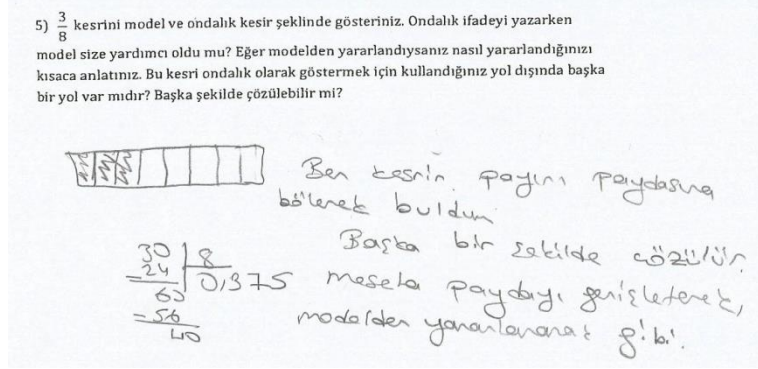 5) 3/8 kesrini model ve ondalık kesir şeklinde gösteriniz. Ondalık ifadeyi yazarken
model size yardımcı oldu mu? Eğer modelden yararlandıysanız nasıl yararlandığınızı
kısaca anlatınız. Bu kesri ondalık olarak göstermek için kullandığınız yol dışında başka
bir yol var mıdır? Başka şekilde çözülebilir mi?
Ben kesrin payını paydasına
bölerek buldum
Başka bir şekilde çözülür.
mesela paydayı genişleterek,
modelden yararlanarak gibi.
30 | 8
- 24 | 0,375
60
= 56
40